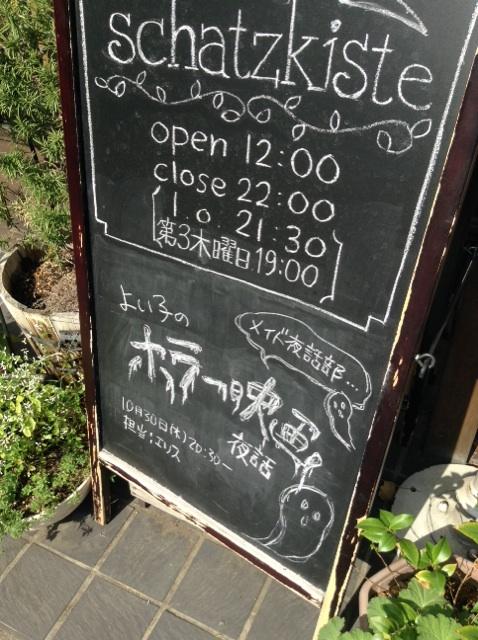 schatzkiste
open 12:00
close 22:00
l.o 21:30
第3木曜日19:00
よい子の
メイド夜話部…
ホラー映画
夜話
10月30日(木)20:30〜
担当:エリス